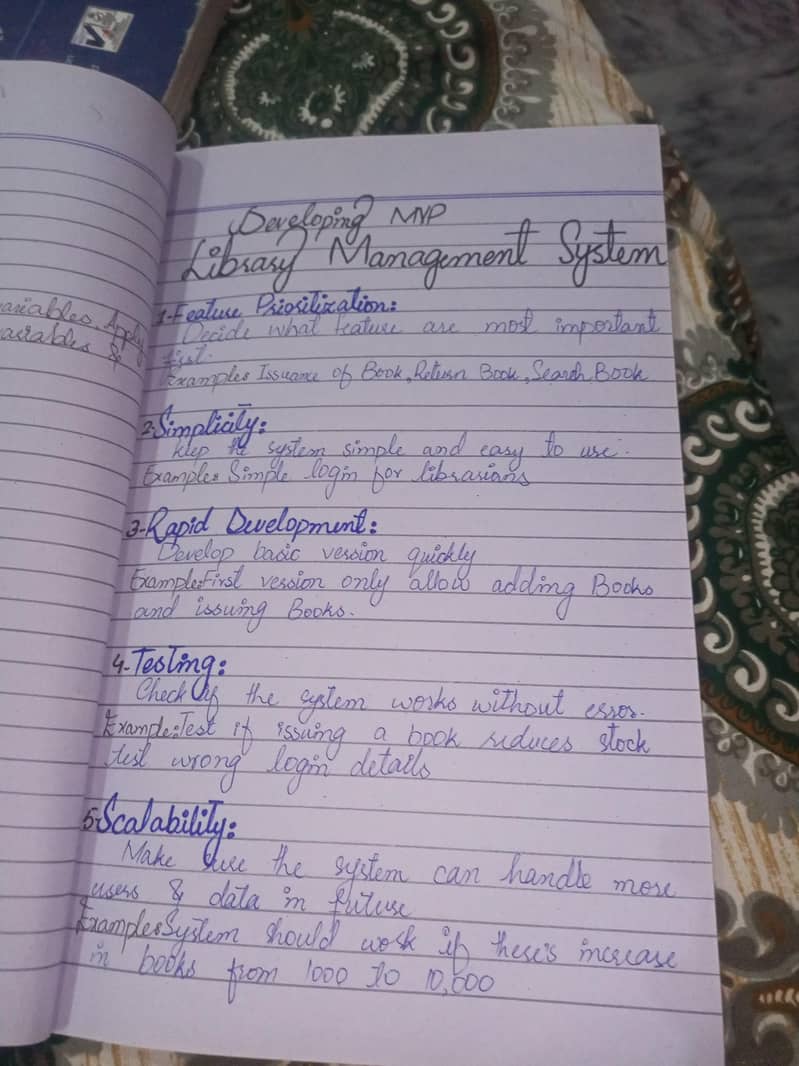 Developing MVP
Library Management System
1-Feature Prioritization:
Decide what feature are most important
first.
Example: Issuance of Book, Return Book, Search Book
2-Simplicity:
Keep the system simple and easy to use.
Example: Simple login for librarians
3-Rapid Development:
Develop basic version quickly
Example: First version only allow adding Books
and issuing Books.
4-Testing:
Check if the system works without error.
Example: Test if issuing a book reduces stock
test wrong login details
5-Scalability:
Make sure the system can handle more
users & data in future
Example: System should work if there's increase
in books from 1000 to 10,000
ariables, Apply
ariables &